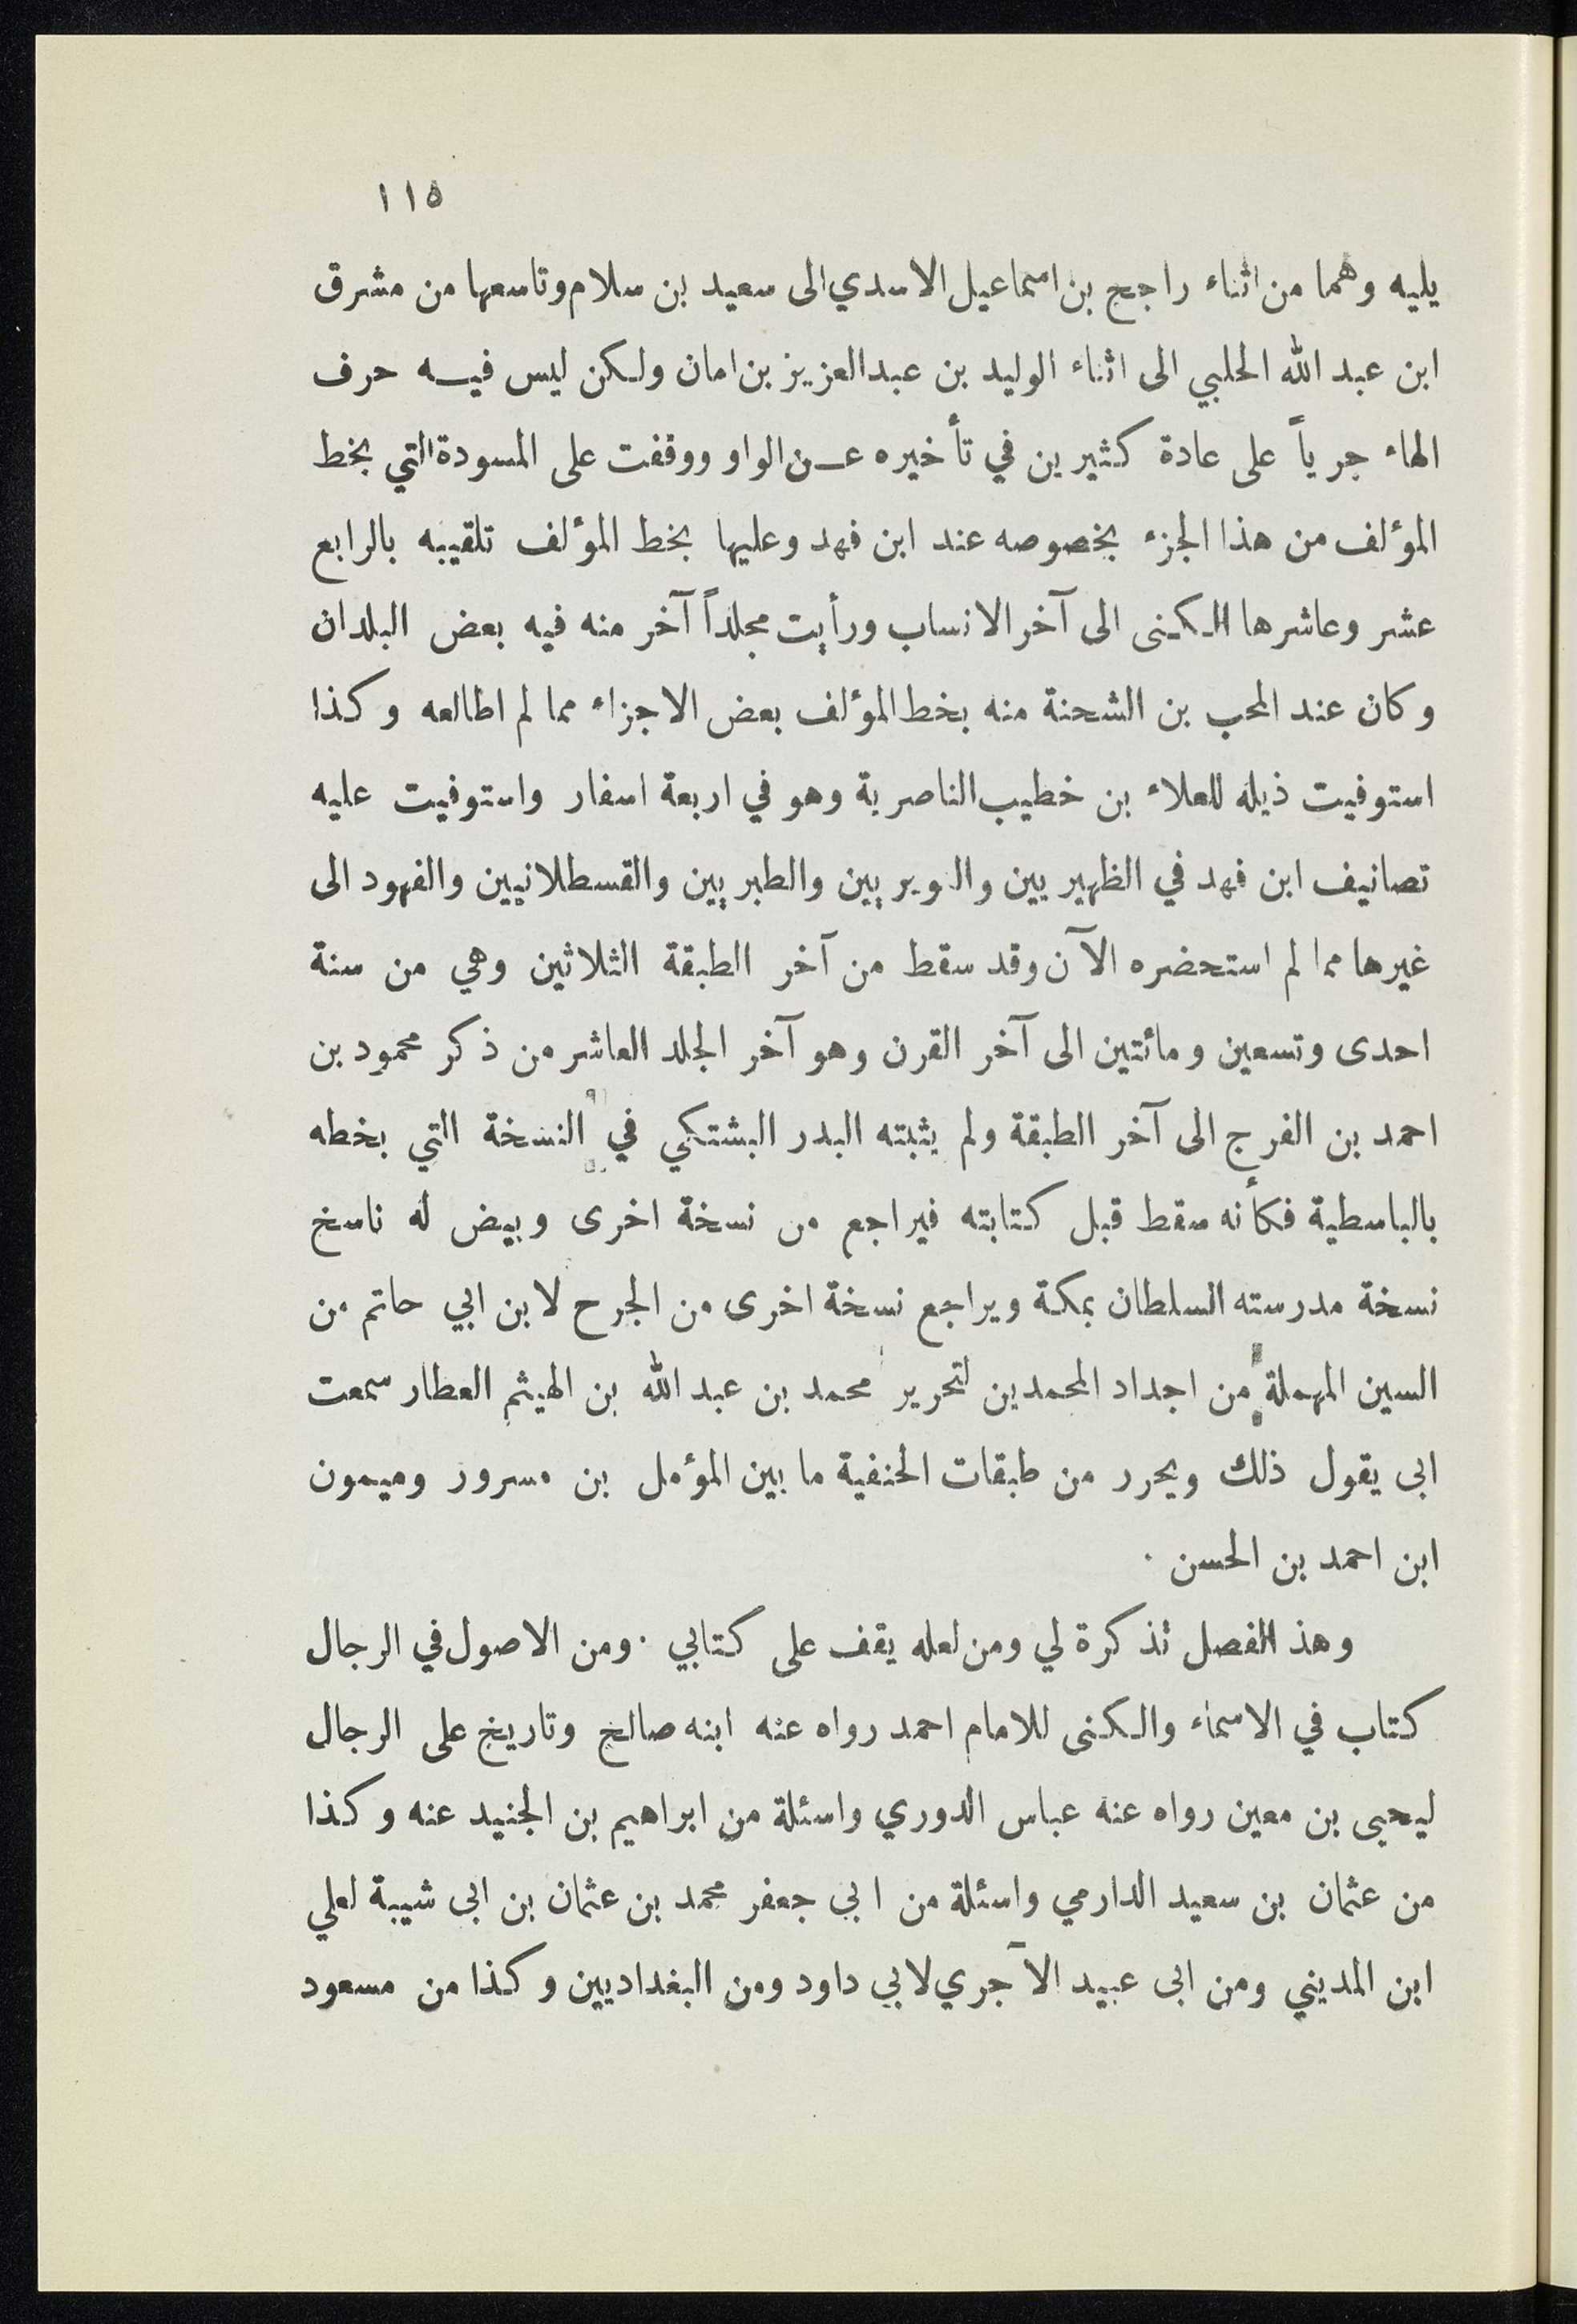 ١١٥
يليه وهما من اثناء راجح بن اسماعيل الاسدي الى سعيد بن سلام وتاسعها من مشرق
ابن عبد الله الحلبي الى اثناء الوليد بن عبد العزيز بن امان ولكن ليس فيه حرف
الهاء جرياً على عادة كثيرين في تأخيره عن الواو ووقفت على المسودة التي بخط
المؤلف من هذا الجزء بخصوصه عند ابن فهد وعليها بخط المؤلف تلقيبه بالرابع
عشر وعاشرها الكنى الى آخر الانساب ورأيت مجلداً آخر منه فيه بعض البلدان
وكان عند المحب بن الشحنة منه بخط المؤلف بعض الاجزاء مما لم اطالعه وكذا
استوفيت ذيله للعلاء بن خطيب الناصرية وهو في اربعة اسفار واستوفيت عليه
تصانيف ابن فهد في الظهيريين والنويريين والطبريين والقسطلانيين والفهود الى
غيرها مما لم استحضره الآن وقد سقط من آخر الطبقة الثلاثين وهي من سنة
احدى وتسعين ومائتين الى آخر القرن وهو آخر الجلد العاشر من ذكر محمود بن
احمد بن الفرج الى آخر الطبقة ولم يثبته البدر البشتكي في النسخة التي بخطه
بالباسطية فكأنه سقط قبل كتابته فيراجع من نسخة اخرى وبيض له ناسخ
نسخة مدرسته السلطان بمكة ويراجع نسخة اخرى من الجرح لابن ابي حاتم من
السين المهملة من اجداد المحمدين لتحرير محمد بن عبد الله بن الهيثم العطار سمعت
ابى يقول ذلك ويحرر من طبقات الحنفية ما بين المؤمل بن مسرور وميمون
ابن احمد بن الحسن .
وهذ الفصل تذكرة لي ومن لعله يقف على كتابي . ومن الاصول في الرجال
كتاب في الاسماء والكنى للامام احمد رواه عنه ابنه صالح وتاريخ على الرجال
ليحيى بن معين رواه عنه عباس الدوري واسئلة من ابراهيم بن الجنيد عنه وكذا
من عثمان بن سعيد الدارمي واسئلة من ابي جعفر محمد بن عثمان بن ابى شيبة لعلي
ابن المديني ومن ابى عبيد الآجري لابي داود ومن البغداديين وكذا من مسعود